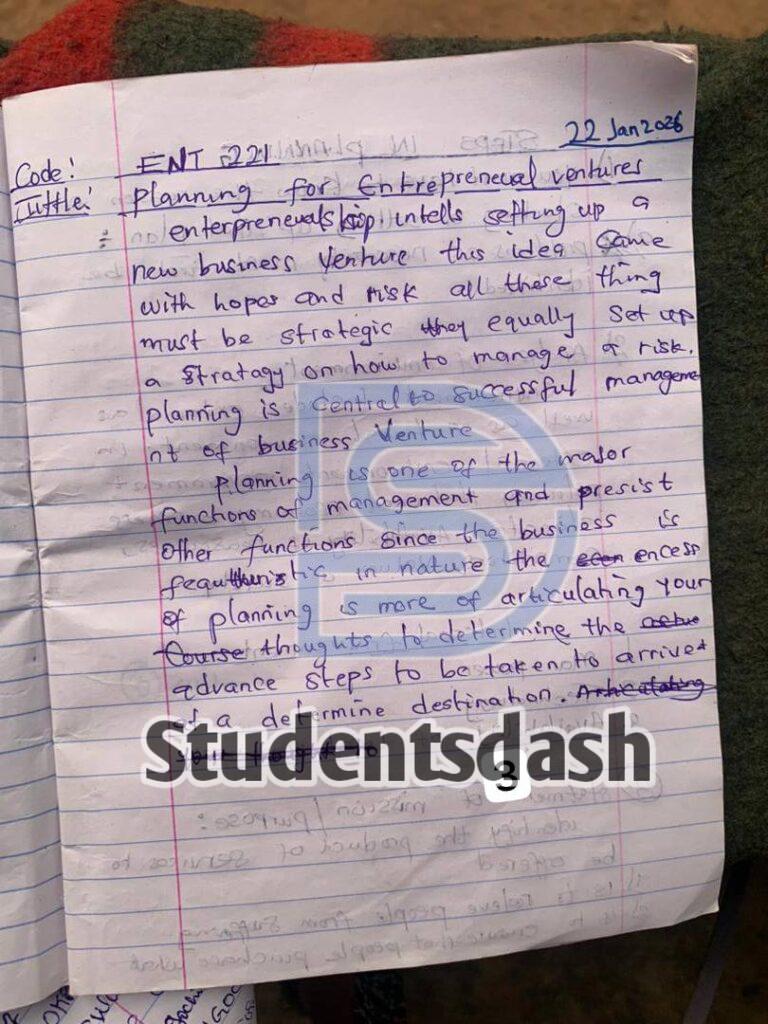 22 Jan 2026
Code: ENT 221
Tuttle: Planning for Entrepreneual ventures
÷ enterpreneualship intells setting up a
new business Venture this idea Came
with hopes and risk all these thing
must be strategic they equally set up
a stratagy on how to manage a risk.
planning is central to successful manageme
nt of business Venture
planning is one of the major
functions of management and presist
other functions since the business is
in nature the encess
of planning is more of articulating your
Course thoughts to determine the
advance steps to be taken to arrive
of a determine destination.
Studentsdash
3
statement of mission / purpose:
identify the product of services to
be offered